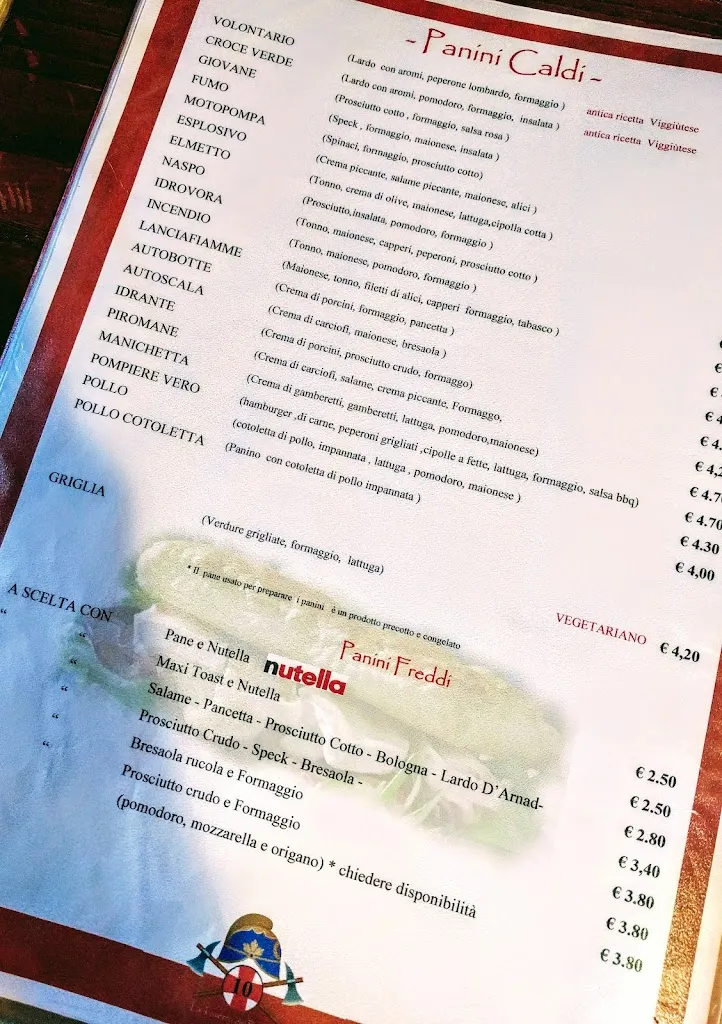 - Panini Caldi -
VOLONTARIO (Lardo con aromi, peperone lombardo, formaggio ) antica ricetta Viggiùtese
CROCE VERDE (Lardo con aromi, pomodoro, formaggio, insalata ) antica ricetta Viggiùtese
GIOVANE (Prosciutto cotto , formaggio, salsa rosa )
FUMO (Speck , formaggio, maionese, insalata )
MOTOPOMPA (Spinaci, formaggio, prosciutto cotto)
ESPLOSIVO (Crema piccante, salame piccante, maionese, alici )
ELMETTO (Tonno, crema di olive, maionese, lattuga,cipolla cotta )
NASPO (Prosciutto,insalata, pomodoro, formaggio )
IDROVORA (Tonno, maionese, capperi, peperoni, prosciutto cotto )
INCENDIO (Tonno, maionese, pomodoro, formaggio )
LANCIAFIAMME (Maionese, tonno, filetti di alici, capperi formaggio, tabasco )
AUTOBOTTE (Crema di porcini, formaggio, pancetta )
AUTOSCALA (Crema di carciofi, maionese, bresaola )
IDRANTE (Crema di porcini, prosciutto crudo, formaggo)
PIROMANE (Crema di carciofi, salame, crema piccante, Formaggo,
MANICHETTA (Crema di gamberetti, gamberetti, lattuga, pomodoro,maionese)
POMPIERE VERO (hamburger ,di carne, peperoni grigliati ,cipolle a fette, lattuga, formaggio, salsa bbq) € 4.70
POLLO (cotoletta di pollo, impannata , lattuga , pomodoro, maionese ) € 4.30
POLLO COTOLETTA (Panino con cotoletta di pollo impannata ) € 4,00
GRIGLIA (Verdure grigliate, formaggio, lattuga) VEGETARIANO € 4,20
* Il pane usato per preparare i panini è un prodotto precotto e congelato
Panini Freddi
nutella
A SCELTA CON Pane e Nutella € 2.50
“ “ Maxi Toast e Nutella € 2.50
“ Salame - Pancetta - Prosciutto Cotto - Bologna - Lardo D’Arnad- € 2.80
“ Prosciutto Crudo - Speck - Bresaola - € 3,40
“ Bresaola rucola e Formaggio € 3.80
“ Prosciutto crudo e Formaggio € 3.80
(pomodoro, mozzarella e origano) * chiedere disponibilità € 3.80
10